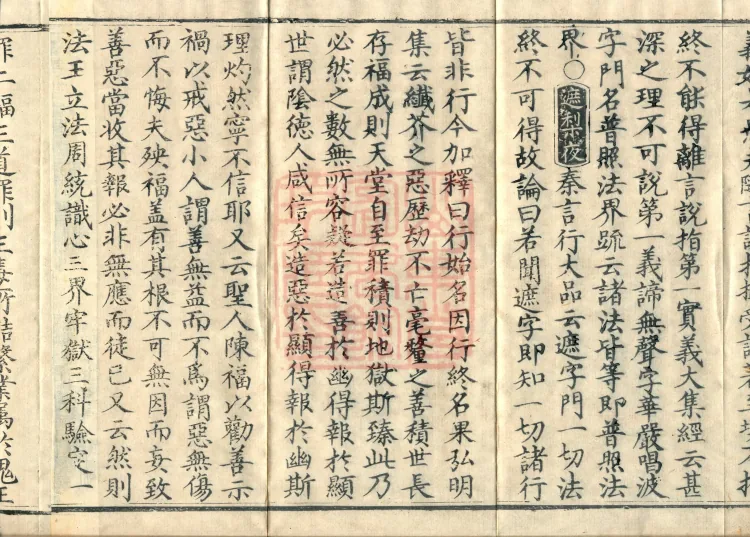 終不能得離言說指第一實義大集經云甚
深之理不可說第一義諦無聲字華嚴唱波
字門名普照法界䟽云諸法皆等即普照法
界〇遮制不夜秦言行大品云遮字門一切法
終不可得故論曰若聞遮字即知一切諸行
皆非行今加釋曰行始名因行終名果弘明
集云纖芥之惡歷劫不亡毫釐之善積世長
存福成則天堂自至罪積則地獄斯臻此乃
必然之數無所容疑若造善於幽得報於顯
世謂陰德人咸信矣造惡於顯得報於幽斯
理灼然寧不信耶又云聖人陳福以勸善示
禍以戒惡小人謂善無益而不爲謂惡無傷
而不悔夫殃福盖有其根不可無因而妄致
善惡當收其報必非無應而徒已又云然則
法王立法周統識心三界牢獄三科驗定一
罪二福三道罪則三毒所結繫業屬於鬼王